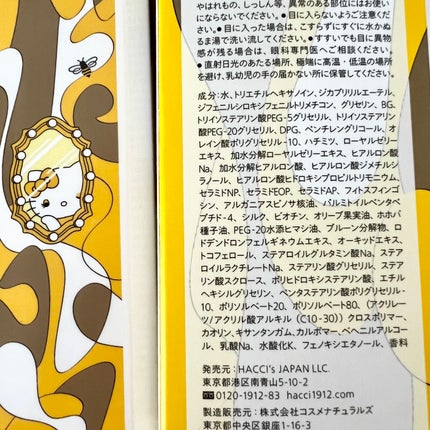 やはれもの、しっしん等、異常のある部位にはお使い
にならないでください。●目に入らないようご注意くだ
さい。●目に入った場合は、こすらずにすぐに水かぬ
るま湯で洗い流してください。●すすいでも目に異物
感が残る場合は、眼科専門医へご相談ください。
●直射日光のあたる場所、極端に高温・低温の場所
を避け、乳幼児の手の届かない所に保管してください。
成分：水、トリエチルヘキサノイン、ジカプリリルエーテル、
ジフェニルシロキシフェニルトリメチコン、グリセリン、BG、
トリイソステアリン酸PEG-5グリセリル、トリイソステアリン
酸PEG-20グリセリル、DPG、ペンチレングリコール、オ
レイン酸ポリグリセリル-10、ハチミツ、ローヤルゼリー
エキス、加水分解ローヤルゼリーエキス、ヒアルロン酸
Na、加水分解ヒアルロン酸、ヒアルロン酸ジメチルシ
ラノール、ヒアルロン酸ヒドロキシプロピルトリモニウム、
セラミドNP、セラミドEOP、セラミドAP、フィトスフィンゴ
シン、アルガニアスピノサ核油、パルミトイルペンタペ
プチド-4、シルク、ビオチン、オリーブ果実油、ホホバ
種子油、PEG-20水添ヒマシ油、プルーン分解物、ロ
ドデンドロンフェルギネウムエキス、オーキッドエキス、
トコフェロール、ステアロイルグルタミン酸Na、ステア
ロイルラクチレートNa、ステアリン酸グリセリル、ステア
リン酸スクロース、ポリヒドロキシステアリン酸、エチル
ヘキシルグリセリン、ペンタステアリン酸ポリグリセリル
-10、ポリソルベート20、ポリソルベート80、（アクリレー
ツ/アクリル酸アルキル（C10-30））クロスポリマー、
カオリン、キサンタンガム、カルボマー、ベヘニルアルコー
ル、乳酸Na、水酸化K、フェノキシエタノール、香料
発売元：HACCI's JAPAN LLC.
東京都港区南青山5-10-2
0120-1912-83 hacci1912.com
製造販売元：株式会社コスメナチュラルズ
東京都中央区銀座1-16-3